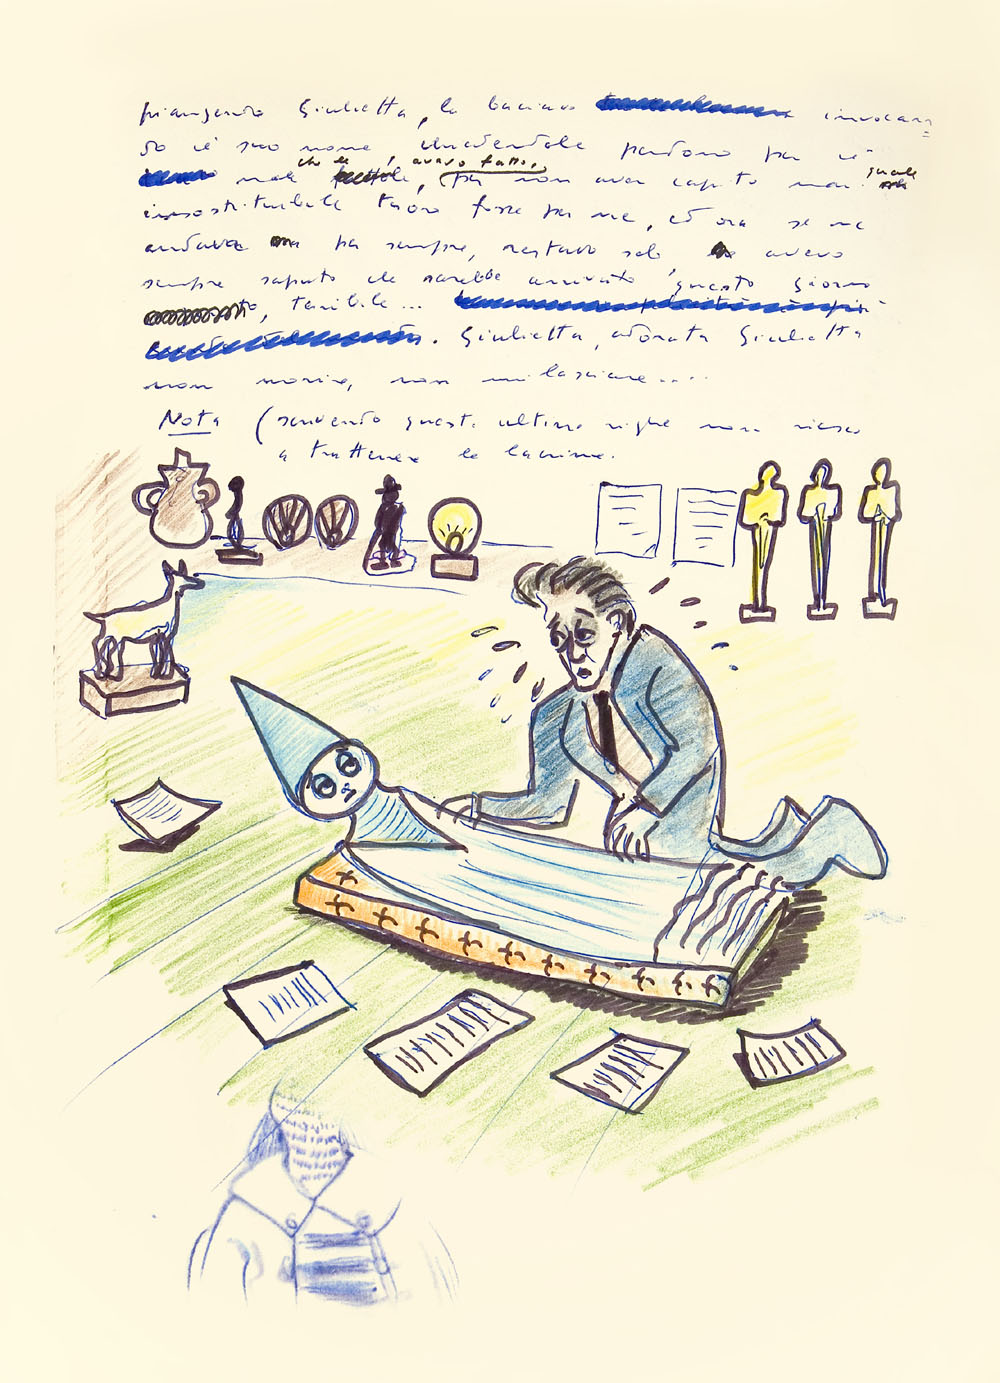 piangendo Giulietta, la baciavo invocan
do il suo nome chiedendole perdono per il
male che le avevo fatto, per non aver capito mai quale
insostituibile tesoro fosse per me, ed ora se ne
andava per sempre, restavo solo avevo
sempre saputo che sarebbe arrivato questo giorno
terribile...
. Giulietta, adorata Giulietta
non morire, non mi lasciare....
Nota (scrivendo queste ultime righe non riesco
a trattenere le lacrime.